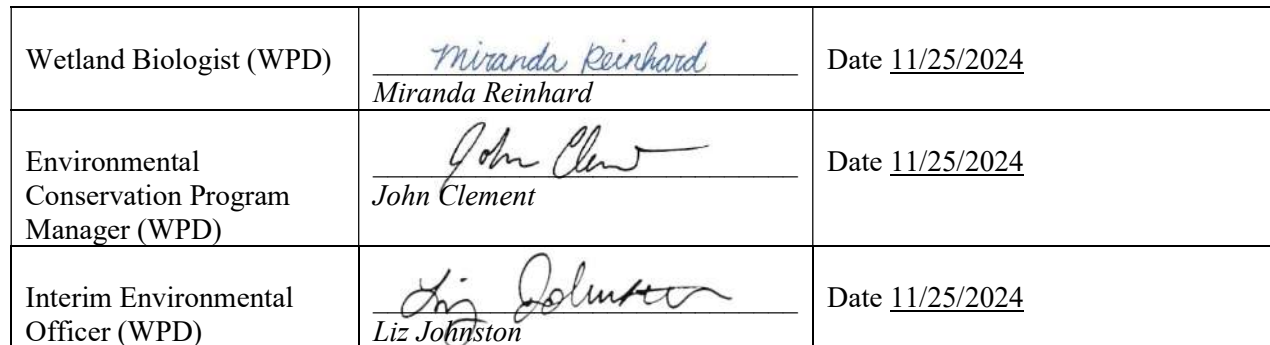 Wetland Biologist (WPD)
Miranda Reinhard
Miranda Reinhard
Date 11/25/2024
Environmental
Conservation Program
Manager (WPD)
John Clement
John Clement
Date 11/25/2024
Interim Environmental
Officer (WPD)
Liz Johnston
Liz Johnston
Date 11/25/2024